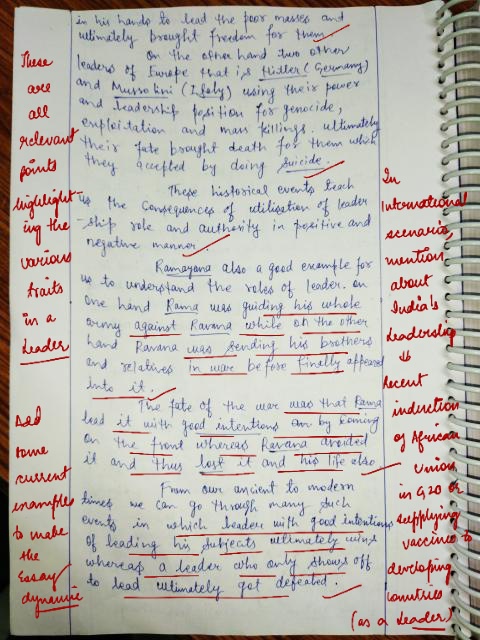 in his hands to lead the poor masses and
ultimately brought freedom for them.
On the other hand two other
leaders of Europe that is Hitler (Germany)
and Mussolini (Italy) using their power
and leadership position for genocide,
exploitation and mass killings. ultimately
their fate brought death for them which
they accepted by doing suicide.
These historical events teach
us the consequences of utilisation of leader
-ship role and authority in positive and
negative manner.
Ramayana also a good example for
us to understand the roles of leader. on
one hand Rama was guiding his whole
army against Ravana while on the other
hand Ravana was sending his brothers
and relatives in war before finally appeared
into it.
The fate of the war was that Rama
lead it with good intentions by coming
on the front whereas Ravana avoided
it and thus lost it and his life also
From our ancient to modern
times we can go through many such
events in which leader with good intentions
of leading his subjects ultimately wins
whereas a leader who only shows off
to lead ultimately got defeated.
These
are
all
relevant
points
highlight-
ing the
various
traits
in a
Leader
Add
some
current
examples
to make
the
Essay
dynamic
In
International
scenario,
mention
about
India's
Leadership
↓
Recent
induction
of African
Union
in G20 or
supplying
vaccines to
developing
countries
(as a Leader)